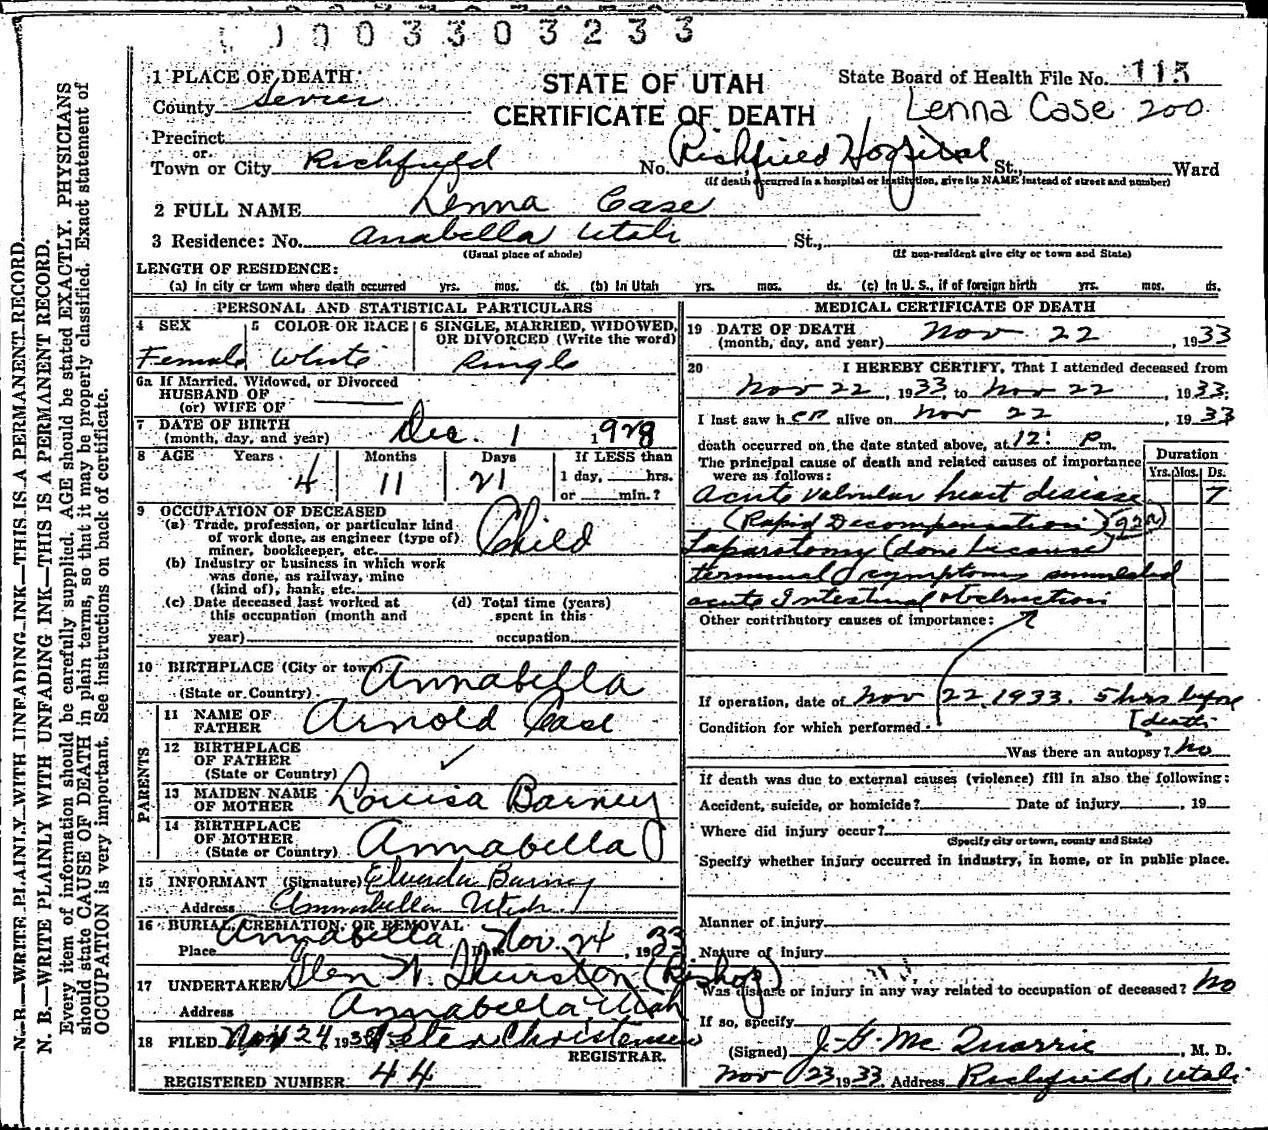 ( ) 0 0 3 3 0 3 2 3 3
N. B.—WRITE PLAINLY WITH UNFADING INK—THIS IS A PERMANENT RECORD.
N. B.—WRITE PLAINLY WITH UNFADING INK—THIS IS A PERMANENT RECORD.
Every item of information should be carefully supplied. AGE should be stated EXACTLY. PHYSICIANS
should state CAUSE OF DEATH in plain terms, so that it may be properly classified. Exact statement of
OCCUPATION is very important. See instructions on back of certificate.
STATE OF UTAH
CERTIFICATE OF DEATH
State Board of Health File No. 115
Lenna Case 200
1 PLACE OF DEATH:
County Sevier
Precinct
or
Town or City Richfield No. Richfield Hospital St., Ward
(If death occurred in a hospital or institution, give its NAME instead of street and number)
2 FULL NAME Lenna Case
3 Residence: No. Anabella Utah St.,
(Usual place of abode) (If non-resident give city or town and State)
LENGTH OF RESIDENCE:
(a) In city or town where death occurred yrs. mos. ds. (b) In Utah yrs. mos. ds. (c) In U. S., if of foreign birth yrs. mos. ds.
PERSONAL AND STATISTICAL PARTICULARS
4 SEX Female
5 COLOR OR RACE White
6 SINGLE, MARRIED, WIDOWED,
OR DIVORCED (Write the word)
Single
6a If Married, Widowed, or Divorced
HUSBAND OF
(or) WIFE OF
7 DATE OF BIRTH
(month, day, and year) Dec. 1 1928
8 AGE Years Months Days If LESS than
4 11 21 1 day, hrs.
or min.?
9 OCCUPATION OF DECEASED
(a) Trade, profession, or particular kind
of work done, as engineer (type of)
miner, bookkeeper, etc. Child
(b) Industry or business in which work
was done, as railway, mine
(kind of), bank, etc.
(c) Date deceased last worked at
this occupation (month and
year)
(d) Total time (years)
spent in this
occupation
10 BIRTHPLACE (City or town) Annabella
(State or Country)
PARENTS
11 NAME OF
FATHER Arnold Case
12 BIRTHPLACE
OF FATHER
(State or Country) ✓
13 MAIDEN NAME
OF MOTHER Louisa Barney
14 BIRTHPLACE
OF MOTHER
(State or Country) Annabella
15 INFORMANT (Signature) Barney
Address Annabella Utah
16 BURIAL, CREMATION, OR REMOVAL
Place Annabella Date Nov. 24, 1933
17 UNDERTAKER Glen W. Thurston (Bishop)
Address Annabella Utah
18 FILED Nov 24, 193 Peter Christensen
REGISTRAR.
REGISTERED NUMBER 44
MEDICAL CERTIFICATE OF DEATH
19 DATE OF DEATH
(month, day, and year) Nov 22, 1933
20 I HEREBY CERTIFY, That I attended deceased from
Nov 22, 1933, to Nov 22, 1933;
I last saw her alive on Nov 22, 1933
death occurred on the date stated above, at 12: P m.
The principal cause of death and related causes of importance
were as follows:
Duration
Yrs. Mos. Ds.
Acute valvular heart disease 7
(Rapid Decompensation) (92a)
Laparotomy (done because
terminal symptoms simulated
acute Intestinal obstruction
Other contributory causes of importance:
If operation, date of Nov 22, 1933. 5 hrs before
[death
Condition for which performed
Was there an autopsy? No
If death was due to external causes (violence) fill in also the following:
Accident, suicide, or homicide? Date of injury , 19
Where did injury occur?
(Specify city or town, county and State)
Specify whether injury occurred in industry, in home, or in public place.
Manner of injury
Nature of injury
Was disease or injury in any way related to occupation of deceased? No
If so, specify
(Signed) J. G. McQuarrie, M. D.
Nov 23 1933 Address Richfield, Utah